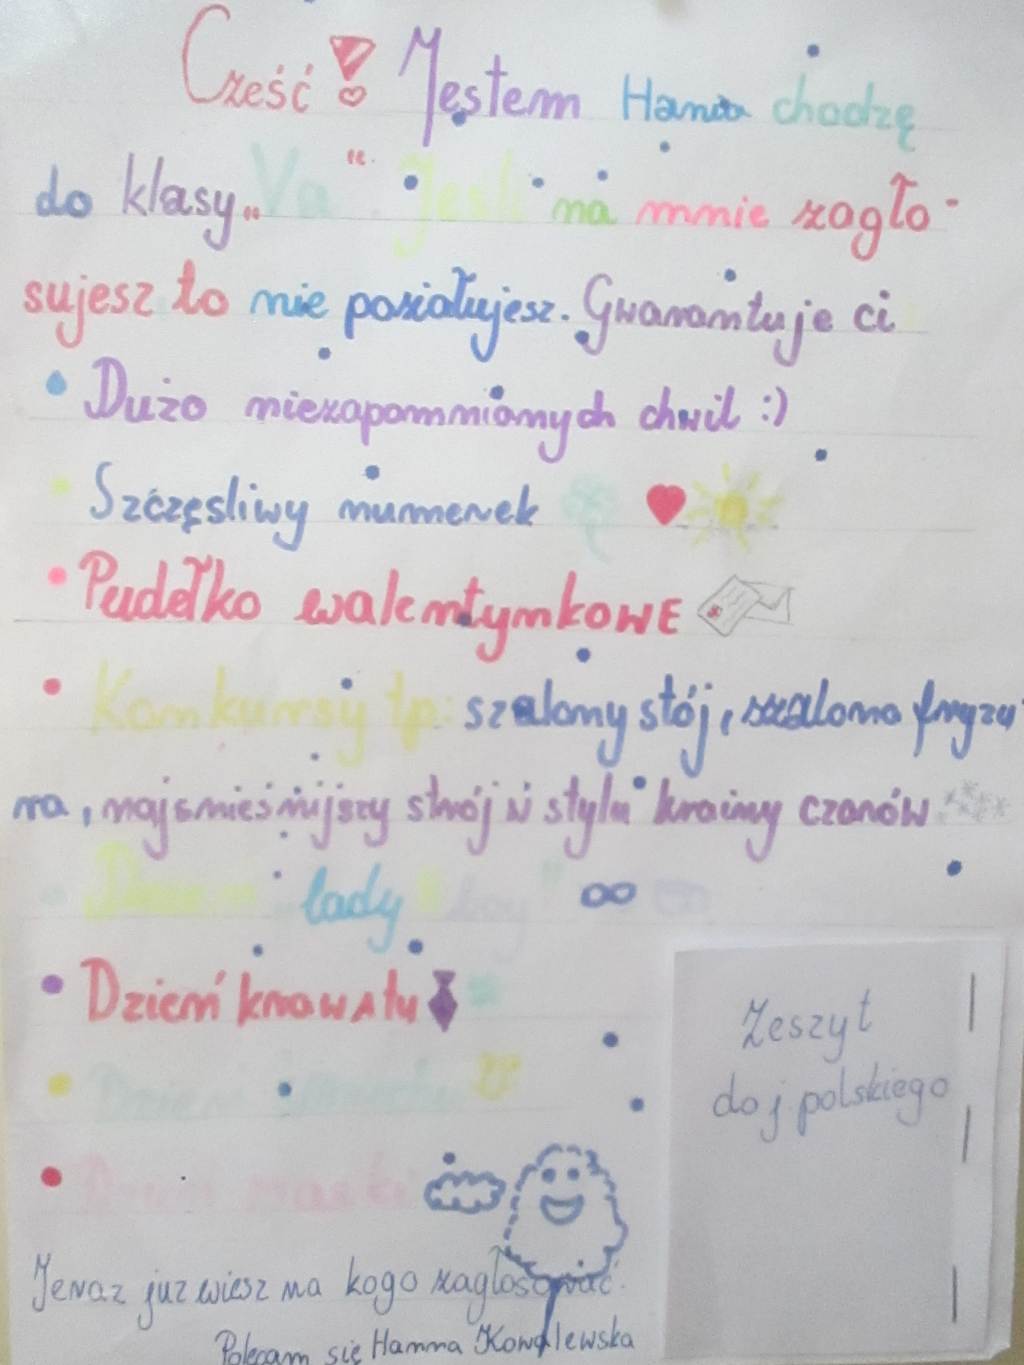 Cześć! Jestem Hania chodzę
do klasy „Va“. Jeśli na mnie zagło-
sujesz to nie pożałujesz. Gwarantuje ci
• Dużo niezapomnianych chwil :)
• Szczęsliwy numerek
• Pudełko walentynkowe
• Konkursy tp: szalony stój, szalona fryzu
ra, najśmieśnijszy strój w stylu krainy czarów
• Dzień "lady & boy"
• Dzień krawatu
• Dzień
• Dzień maski
Teraz juz wiesz na kogo zagłosować.
Polecam się Hanna Kowalewska
Zeszyt
do j. polskiego